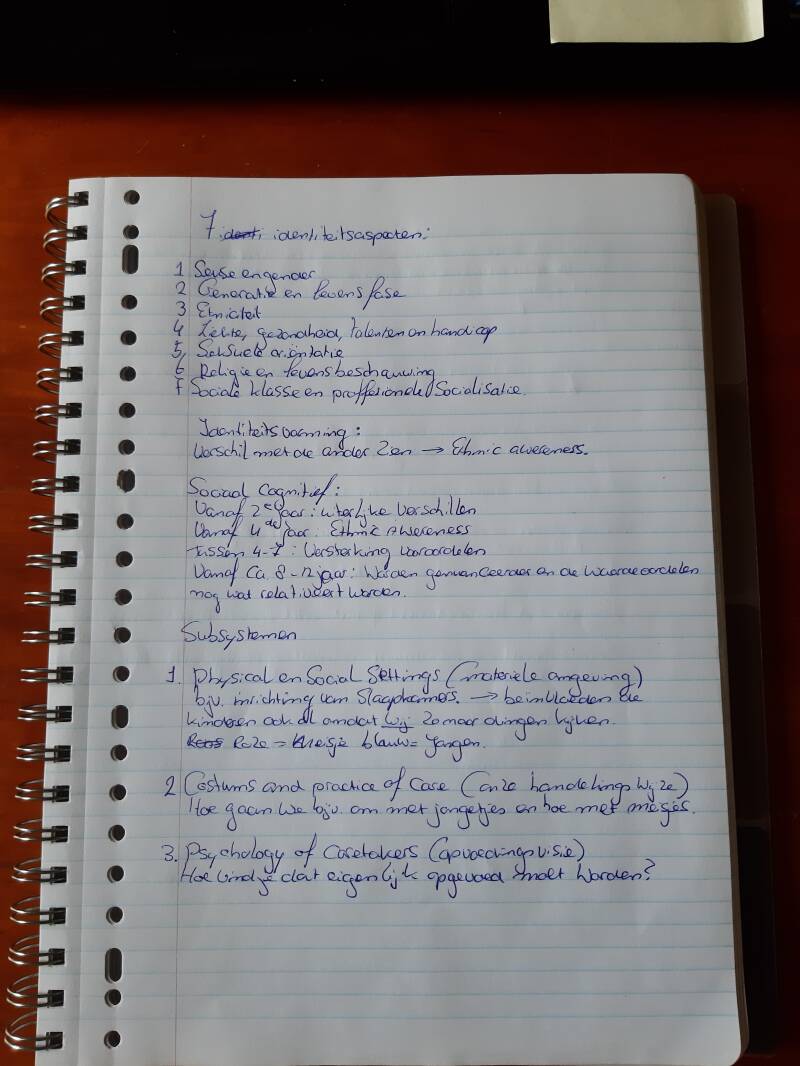 7 identi identiteitsaspecten:
1 Sexse en gender
2 Generatie en levensfase
3 Etniciteit
4 Ziekte, gezondheid, talenten en handicap
5, Seksuele oriëntatie
6 Religie en levensbeschouwing
7 Sociale klasse en proffesionele Socialisatie.
Identiteitsvorming:
Verschil met de ander zien → Ethnic awereness.
Sociaal Cognitief:
Vanaf 2e jaar: uiterlijke verschillen
Vanaf 4de jaar: Ethnic Awereness
Tussen 4-7: Versterking vooroordelen
Vanaf Ca. 8-12 jaar: Worden genuanceerder en de waardeoordelen
nog wat relativeert worden.
Subsystemen
1. Physical en Social Settings (materiele omgeving)
bijv. inrichting van Slaapkamers. → beinvloeden de
kinderen ook al omdat wij zo naar dingen kijken.
Roze = Meisje blauw = Jongen.
2 Costums and practice of Care (onze handelings wijze)
Hoe gaan we bijv. om met jongetjes en hoe met meisjes.
3. Psychology of Caretakers (opvoedingsvisie)
Hoe vind je dat eigenlijk opgevoed moet worden?